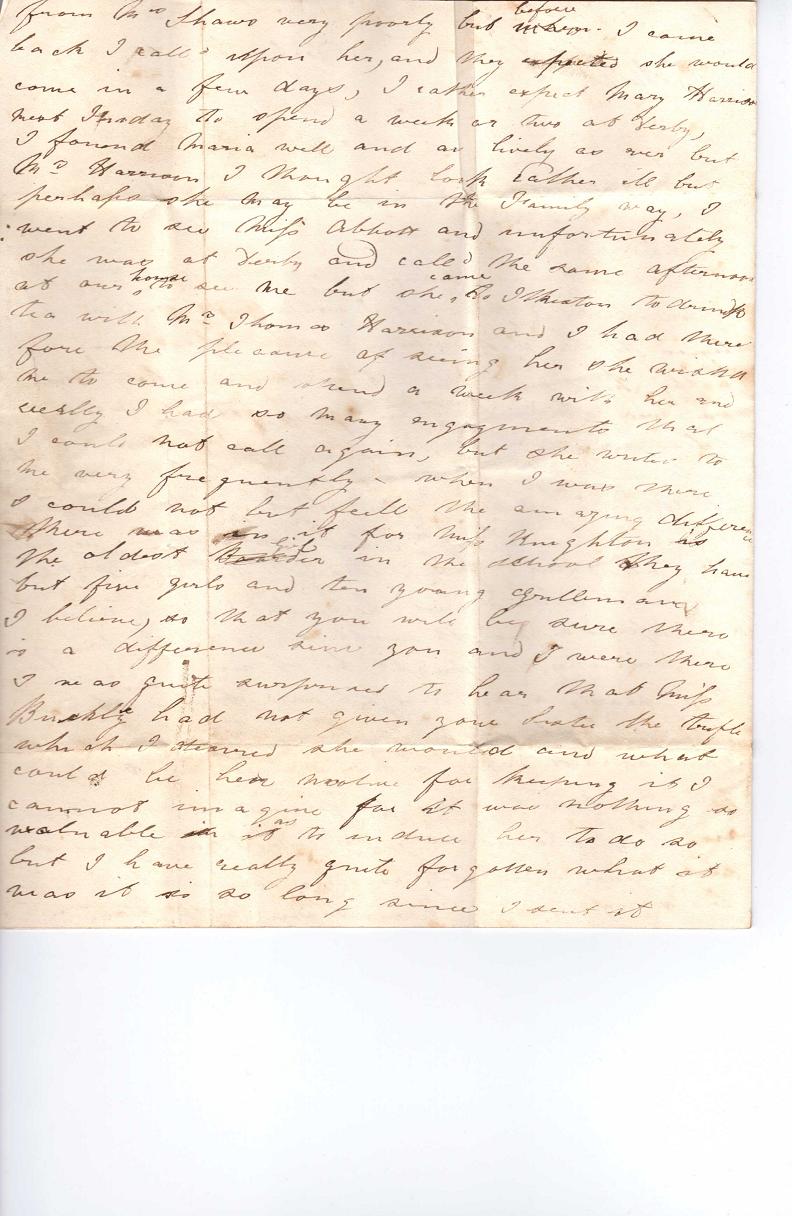 from Mrs Shaws very poorly but before when I came
back I calld upon her, and they expected she would
come in a few days, I rather expect Mary Harrison
next Tusday to spend a week or two at Derby,
I found Maria well and as lively as ever but
Mrs Harrison I thought look rather ill but
perhaps she may be in the Family way, I
went to see Miss Abbott and unfortunately
she was at Derby and calld the same afternoon
at our house to see me but she came to Ilkeston to drink
tea with Mrs Thomas Harrison and I had there
fore the pleasure of seeing her she wishd
me to come and spend a week with her and
really I had so many engagments that
I could not call again, but she writes to
me very frequently - when I was there
I could not but feell the amazing difference
there was in it for Miss Knighton is
the oldest Boarder girl in the school they have
but five girls and ten young Gentleman
I believe, so that you will be sure there
is a difference since you and I were there
I was quite surprised to hear that Miss
had not given you the trifle
which I she would and what
could be her motive for keeping it I
cannot imagine for it was nothing so
valuable in it as to induce her to do so
but I have really quite forgotten what it
was it is so long since I sent it